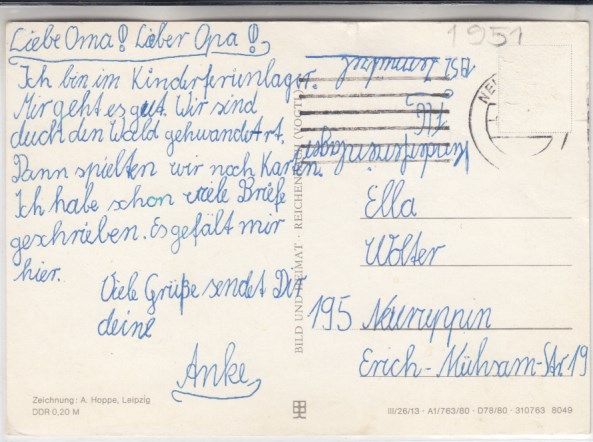 1951
Liebe Oma! Lieber Opa!
Ich bin im Kinderferienlager.
Mir geht es gut. Wir sind
duch den Wald gehwandert.
Dann spielten wir noch Karten.
Ich habe schon viele Briefe
geschrieben. Es gefält mir
hier.
Viele Grüße sendet Dir
deine
Anke
Kinderferienlager
1951
Ella
Wolter
195 Neuruppin
Erich-Mühsam-Str. 19
BILD UND HEIMAT · REICHENBACH (VOGTL)
Zeichnung: A. Hoppe, Leipzig
DDR 0,20 M
III/26/13 · A1/763/80 · D78/80 · 310763 8049